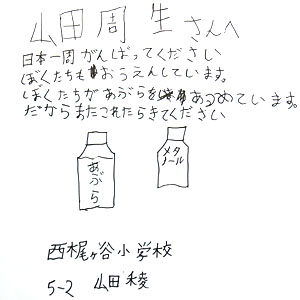 山田周生さんへ
日本一周がんばってください
ぼくたちもおうえんしています。
ぼくたちがあぶらをあつめています。
だからまたこれたらきてください
あぶら
メタノール
西梶ヶ谷小学校
5-2 山田稜